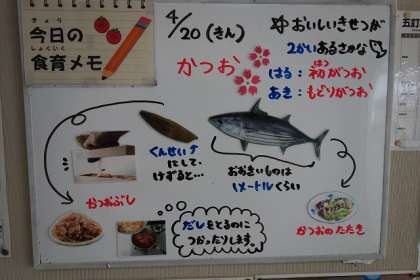 きょう
今日の
しょくいく
食育メモ
4/20(きん)
かつお
おいしいきせつが
2かいあるさかな
はる：初がつお
はつ
あき：もどりがつお
くんせい
にして、
けずると…
おおきいものは
1メートルくらい
かつおぶし
だしをとるのに
つかったりします。
かつおのたたき
五訂